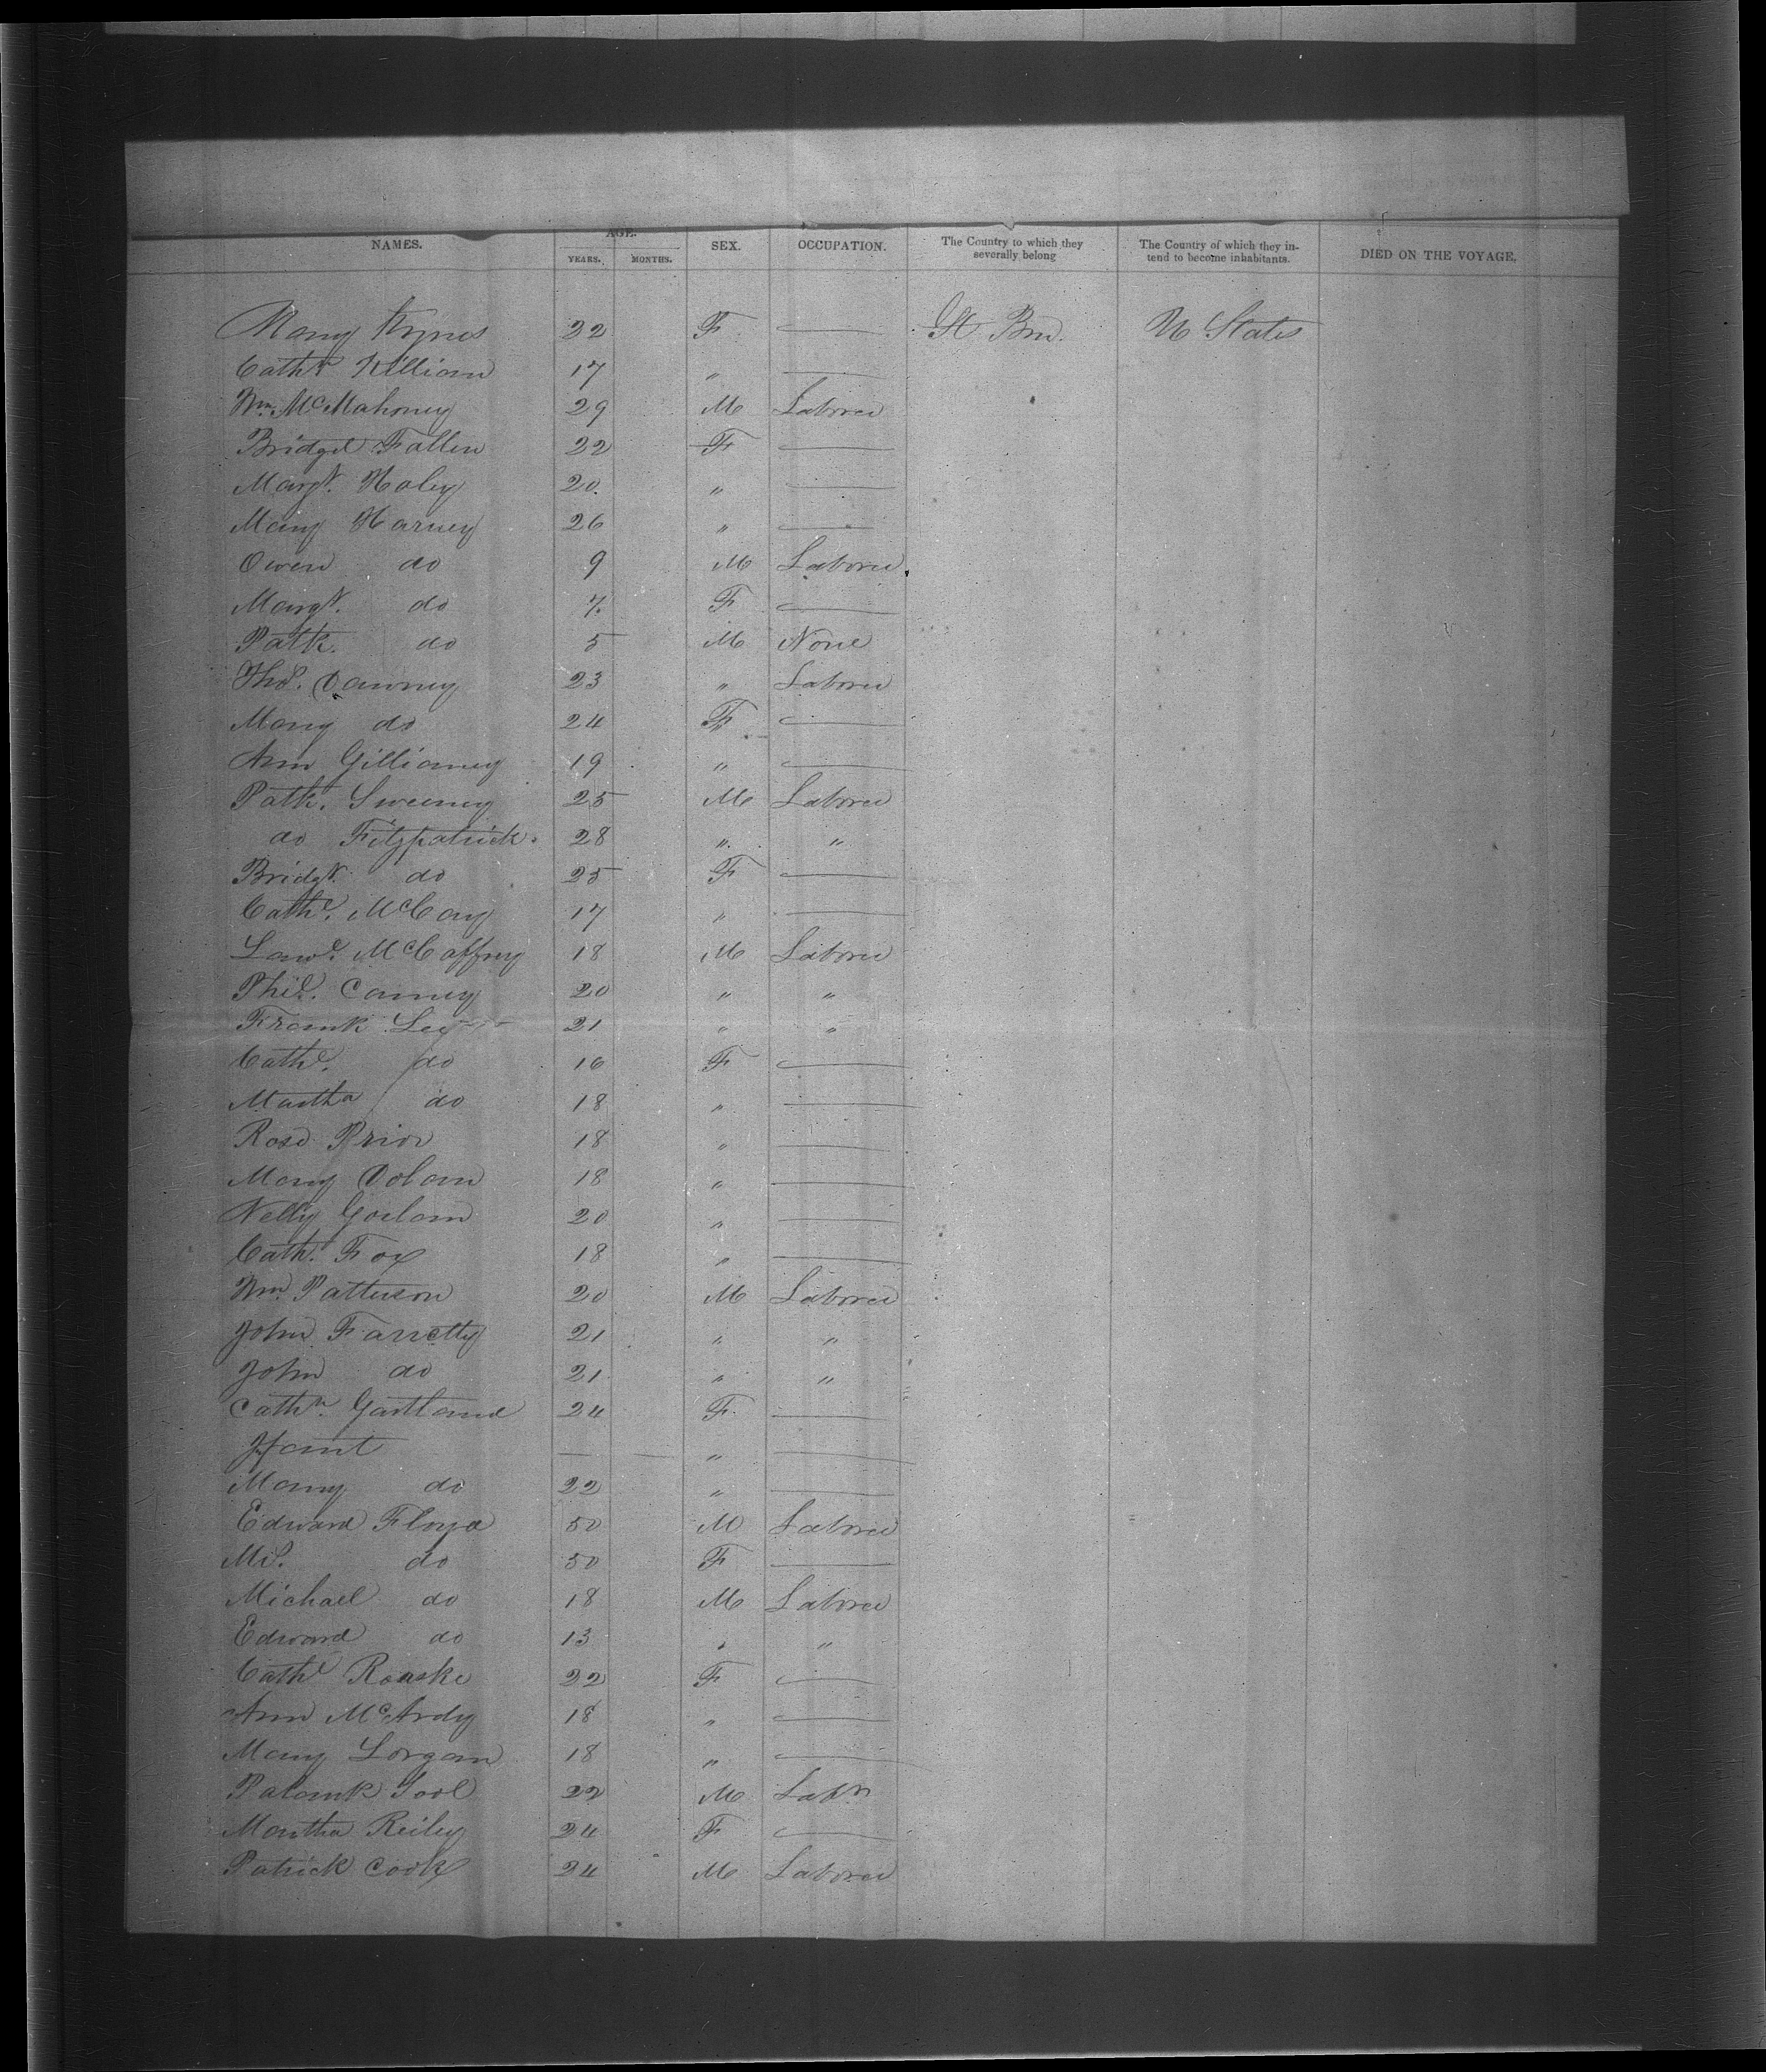 NAMES. AGE. SEX. OCCUPATION. The Country to which they severally belong The Country of which they in-tend to become inhabitants. DIED ON THE VOYAGE,
YEARS. MONTHS.
Mary Kynes 22 F — Gt Brn. U States
Cathe Killian 17 " —
Wm. McMahoney 29 M Laborer
Bridget Fallen 22 F —
Margt. Haley 20. " —
Mary Harney 26 " —
Owen do 9 M Laborer
Margt. do 7. F —
Patk. do 5 M None
Thos. Dawney 23 " Laborer
Mary do 24 F —
Ann Gillianey 19 " —
Patk. Sweeney 25 M Laborer
do Fitzpatrick. 28 " "
Bridgt. do 25 F —
Cathe. McCay 17 " —
Lawe. McCaffrey 18 M Laborer
Phil. Canney 20 " "
Frank Lee 21 " "
Cathe. do 16 F —
Martha do 18 " —
Rose Prior 18 " —
Mary Dolan 18 " —
Nelly 20 " —
Cathe. Fox 18 " —
Wm. Patterson 20 M Laborer
John Farrelly 21 " "
John do 21 " "
Cathn. Gartland 24 F —
Infant — " —
Mary do 22 " —
Edward Floyd 50 M Laborer
Ms. do 50 F —
Michael do 18 M Laborer
Edward do 13 " "
Cathe Roaske 22 F —
Ann McArdy 18 " —
Mary Lorgan 18 " —
Tool 22 M Labr
Martha Reiley 24 F —
Patrick Cook 24 M Laborer